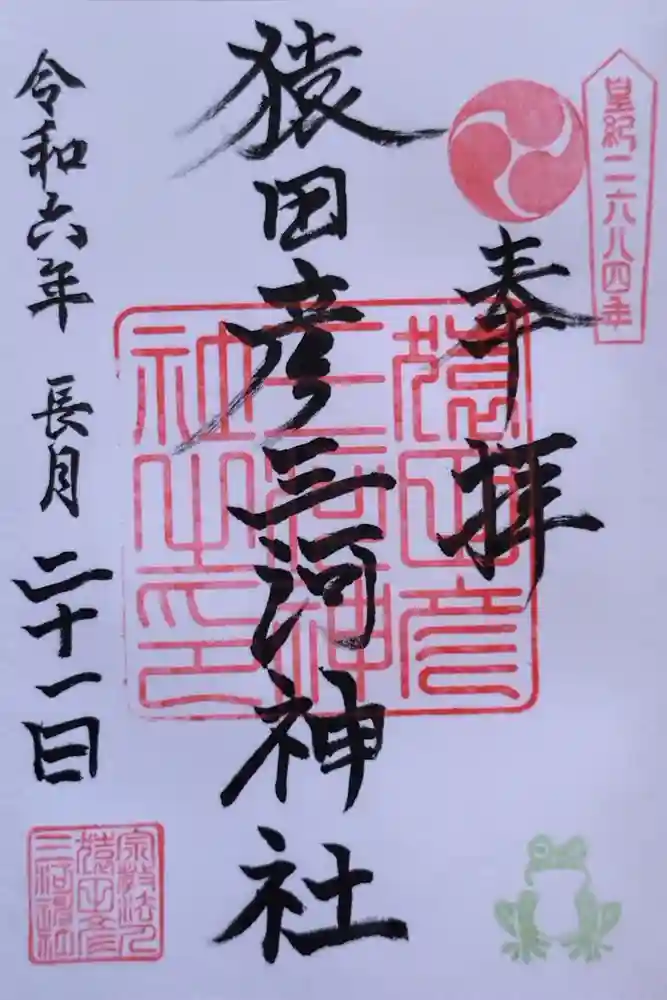 皇紀二六八四年
奉拝
猿田彦三河神社
猿田彦
三河神
社之印
令和六年 長月 二十一日
宗教法人
猿田彦
三河神社